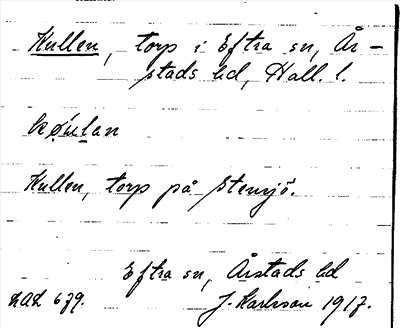 Kullen, torp i Eftra sn, År-
stads hd, Hall. l.
Kullen, torp på Stensjö.
Eftra sn, Årstads hd
679. J. Karlsson 1917.